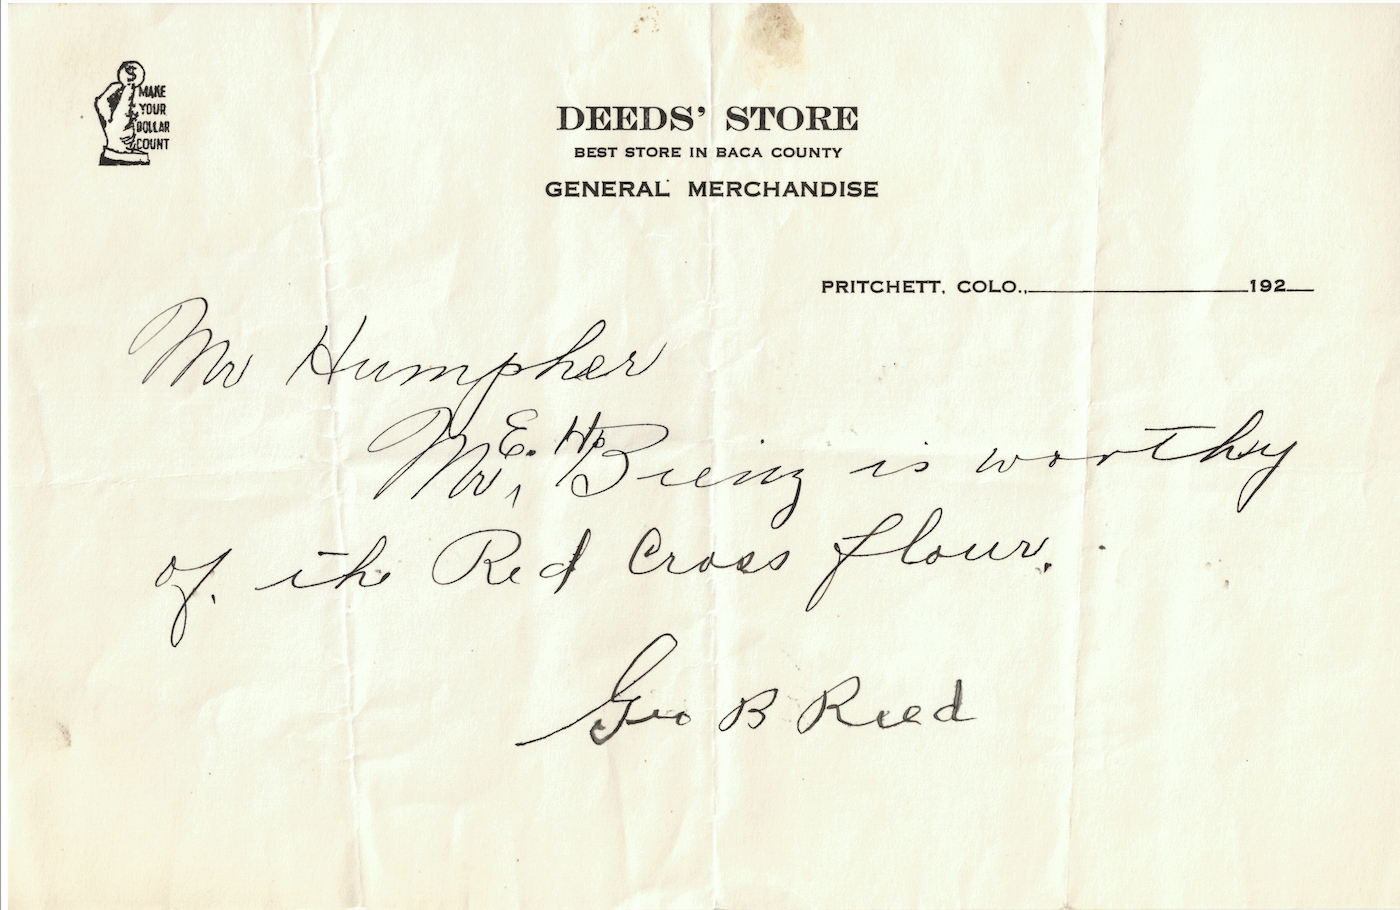 $
MAKE
YOUR
DOLLAR
COUNT
DEEDS' STORE
BEST STORE IN BACA COUNTY
GENERAL MERCHANDISE
PRITCHETT, COLO., 192
Mr Humpher
Mr, E. H. Brenz is worthy
of the Red Cross flour.
Geo B Reed